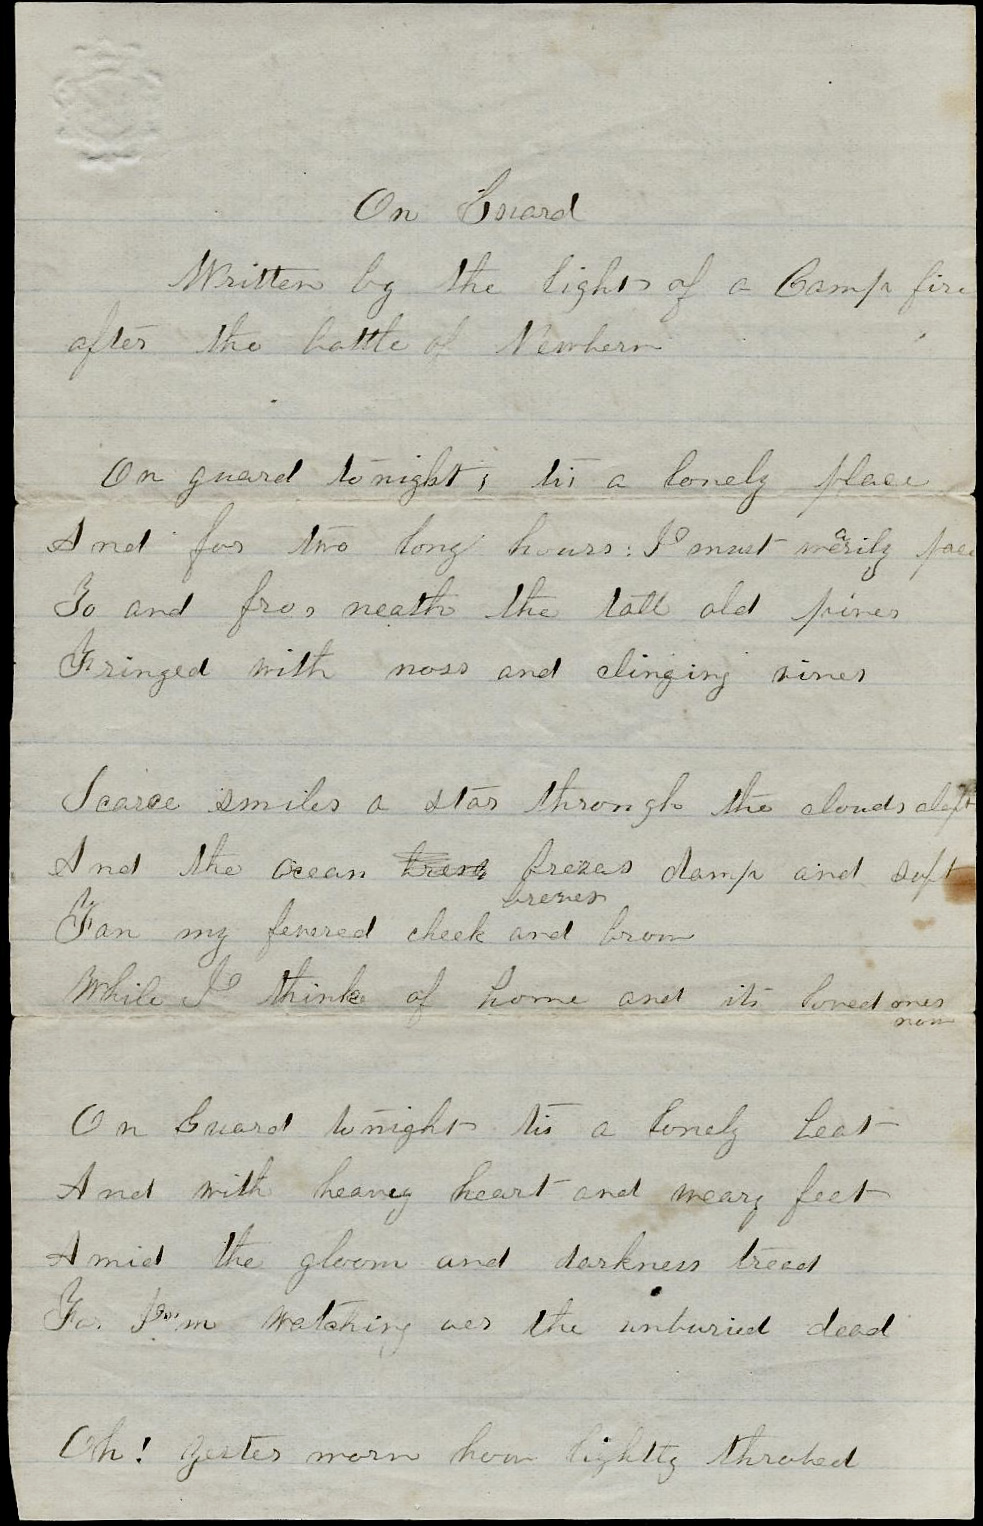 On Guard
Written by the light of a Camp fire
after the battle of Newbern
On guard tonight; tis a lonely place
And for two long hours: I must wearily pace
To and fro, neath the tall old pines
Fringed with moss and clinging vines
Scarce smiles a star through the clouds cleft
And the ocean brezes damp and soft
brezes
Fan my fevered cheek and brow
While I think of home and its loved ones
now
On Guard tonight tis a lonely beat
And with heavy heart and weary feet
Amid the gloom and darkness tread
For I'm watching oer the unburied dead
Oh! yester morn how lightly throbed